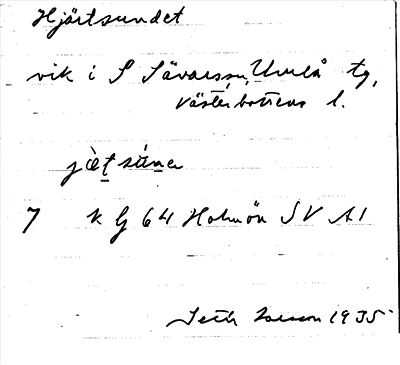 Hjärtsundet
vik i S Sävarssn, Umeå tg,
Västerbottens l.
7 k G 64 Holmön SV A1
Seth 1935